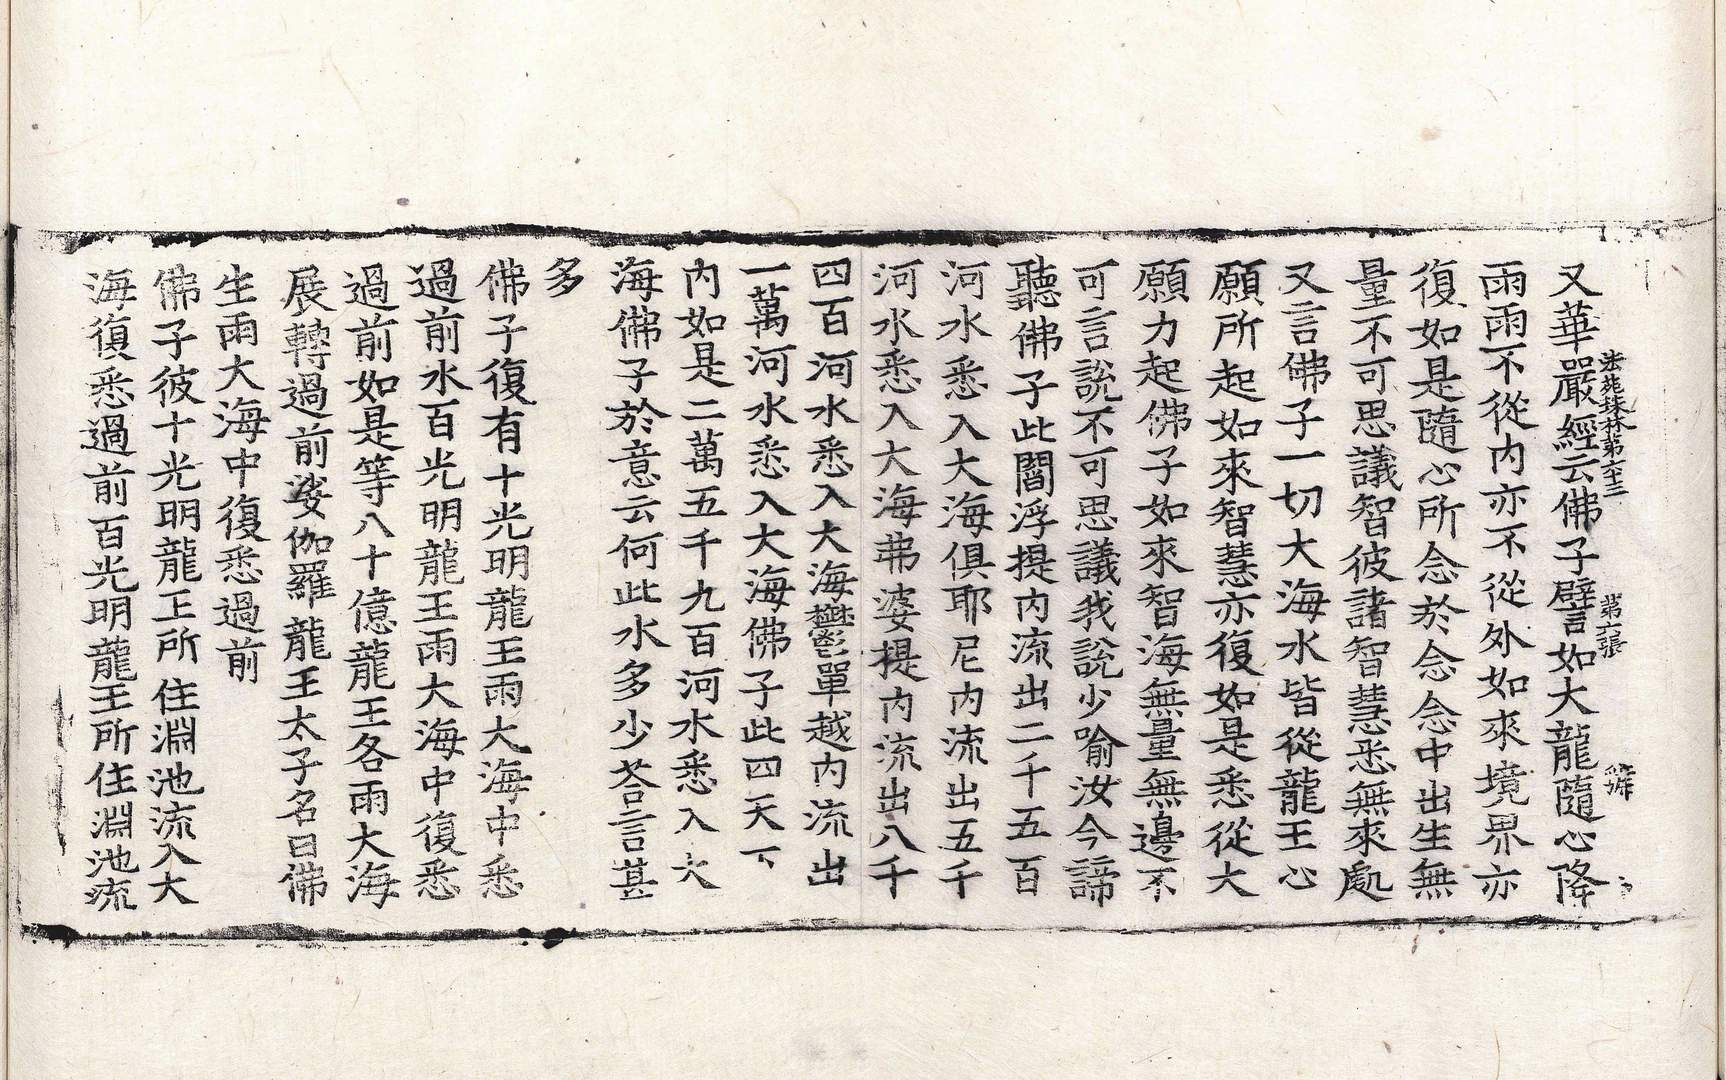 法苑珠林第六十三 第六張 号
又華嚴經云佛子譬如大龍隨心降
雨雨不從内亦不從外如來境界亦
復如是隨心所念於念念中出生無
量不可思議智彼諸智慧悉無來處
又言佛子一切大海水皆從龍王心
願所起如來智慧亦復如是悉從大
願力起佛子如來智海無量無邊不
可言說不可思議我說少喻汝今諦
聽佛子此閻浮提内流出二千五百
河水悉入大海俱耶尼内流出五千
河水悉入大海弗婆提内流出八千
四百河水悉入大海欝單越内流出
一萬河水悉入大海佛子此四天下
内如是二萬五千九百河水悉入大
海佛子於意云何此水多少荅言甚
多
佛子復有十光明龍王雨大海中悉
過前水百光明龍王雨大海中復悉
過前如是等八十億龍王各雨大海
展轉過前娑伽羅龍王太子名曰佛
生雨大海中復悉過前
佛子彼十光明龍王所住淵池流入大
海復悉過前百光明龍王所住淵池流